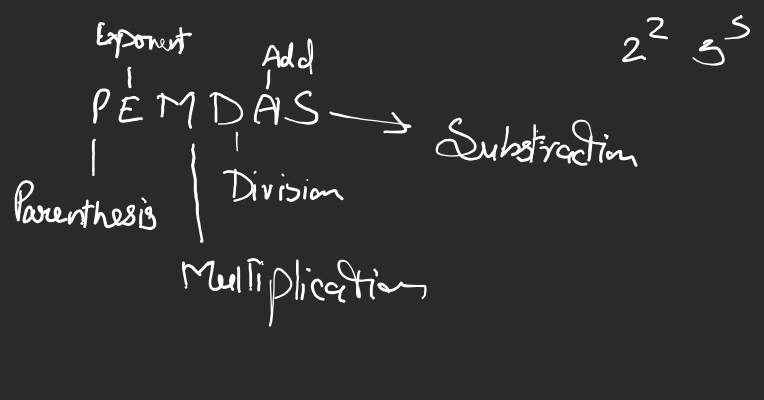 Exponent
Add
2² 3⁵
PEMDAS → Substraction
Parenthesis
Division
Multiplication